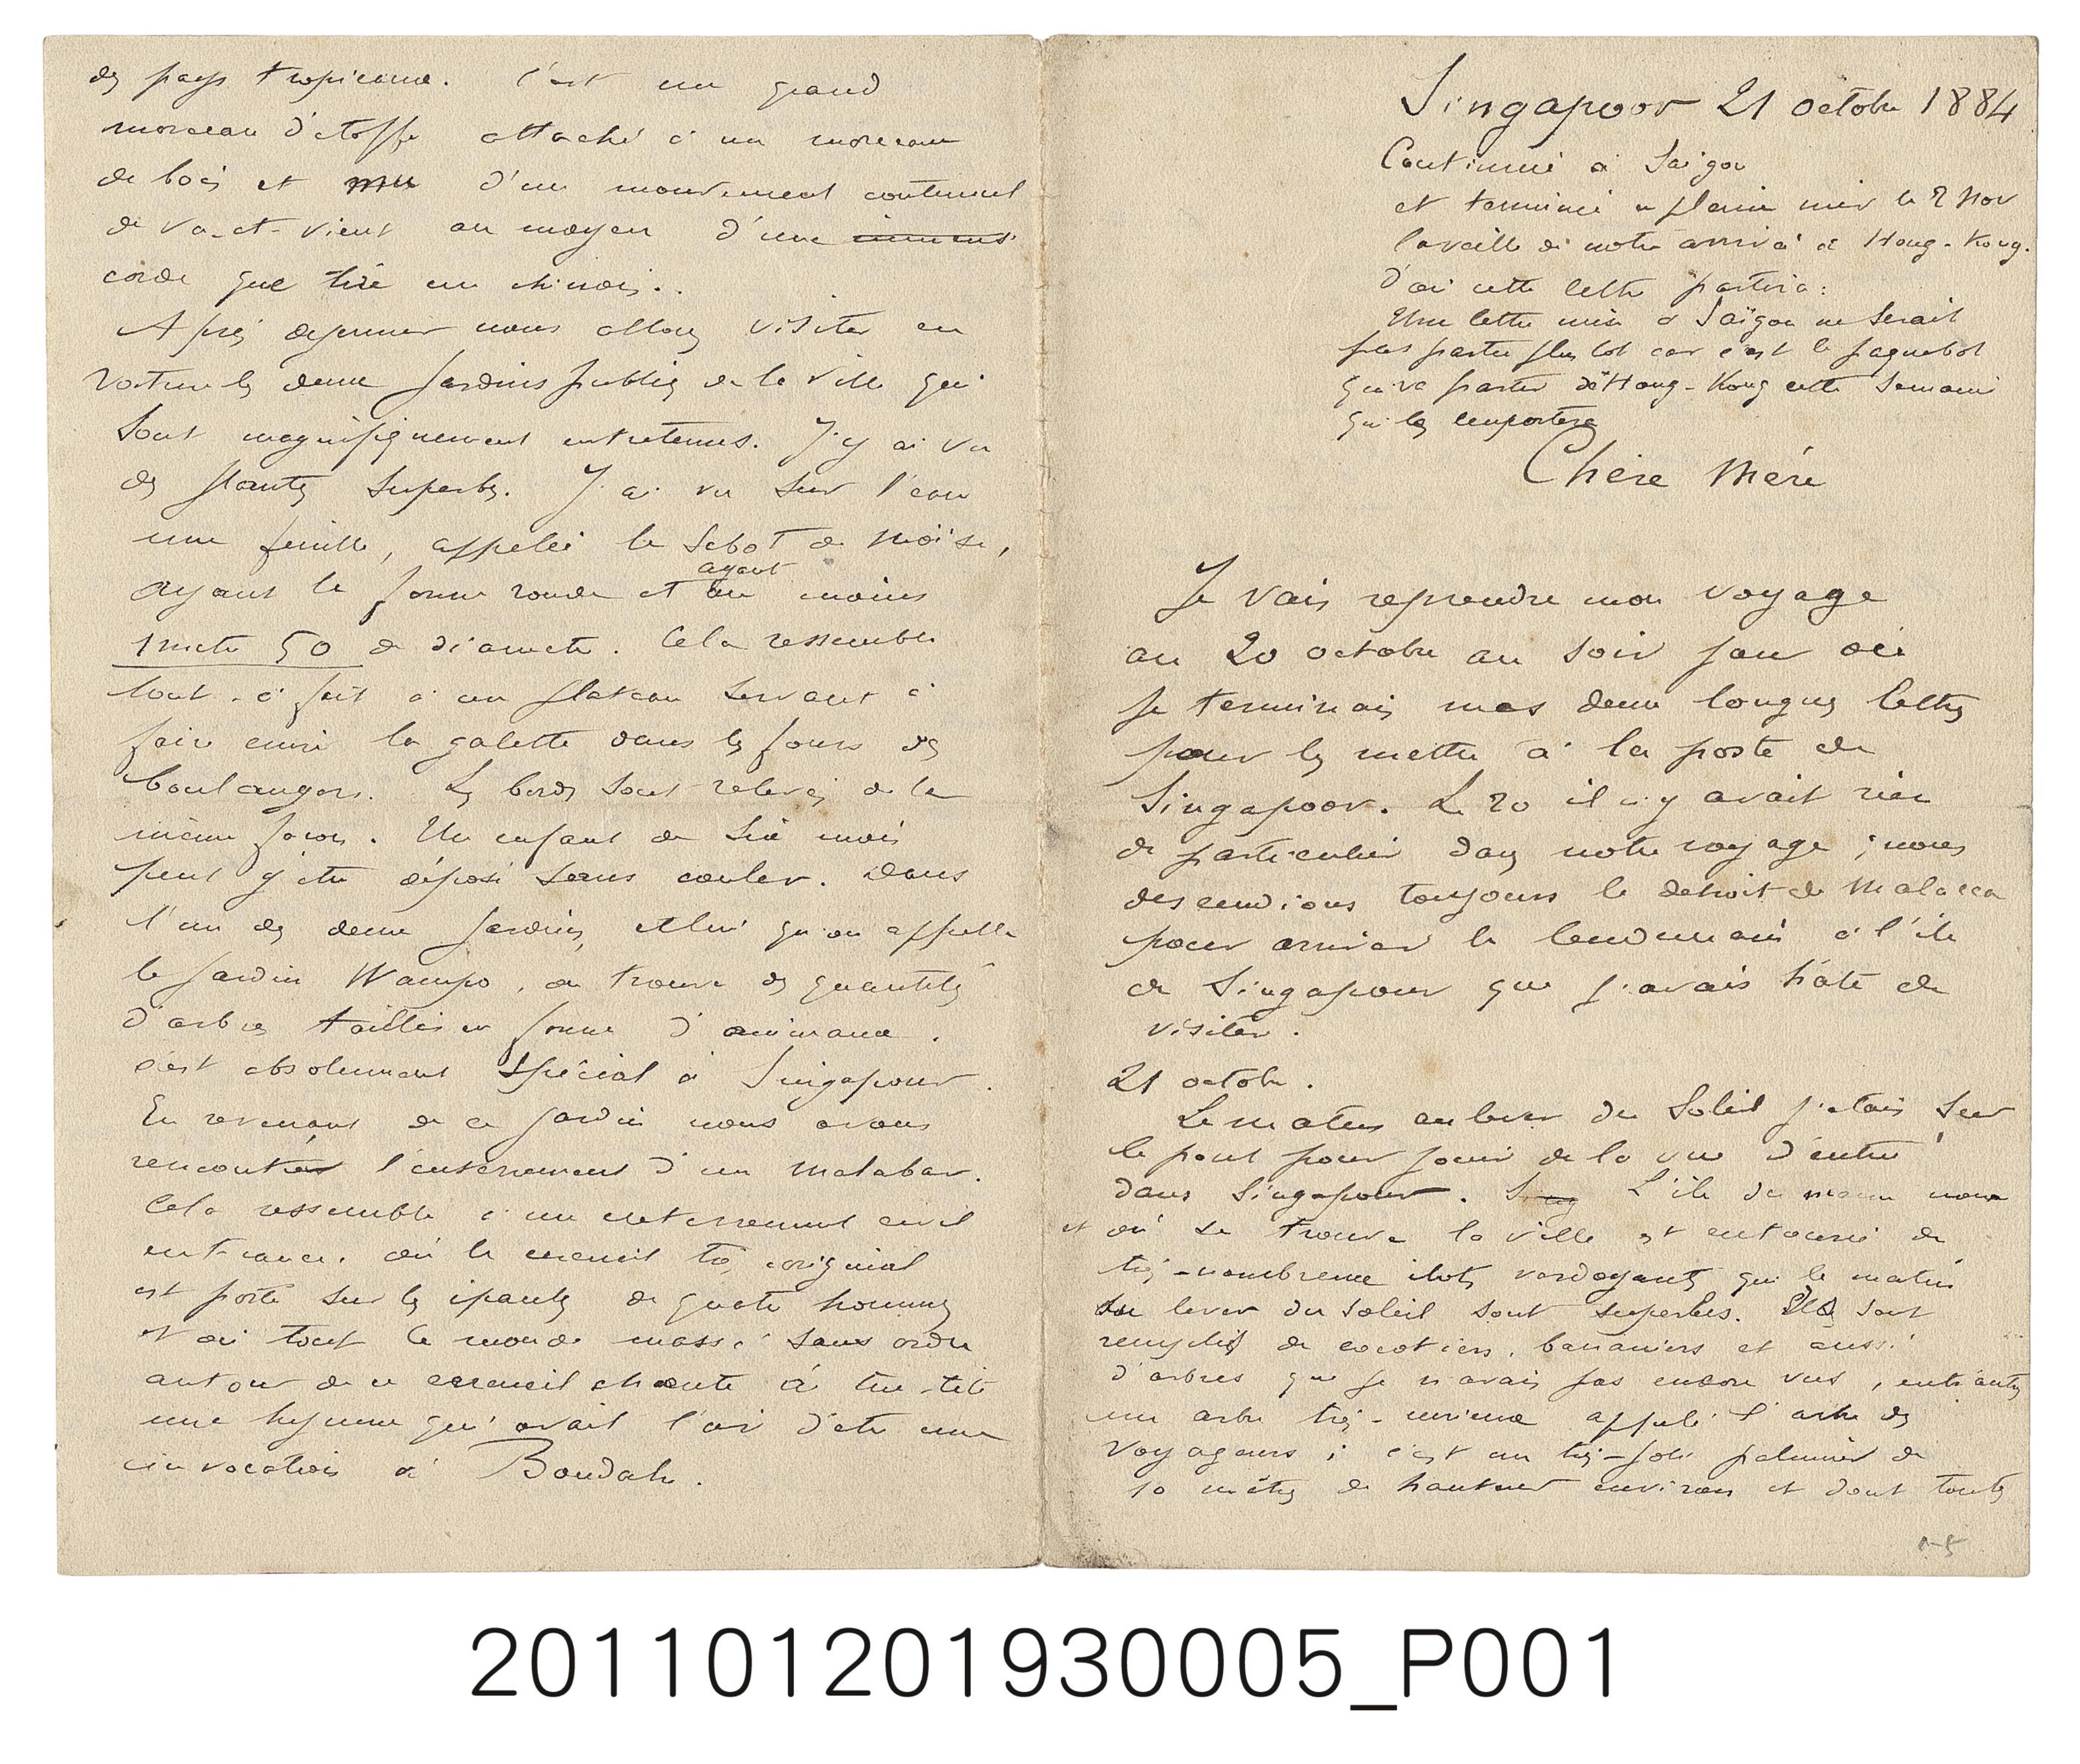 Singapoor 21 octobre 1884
Continuée à Saïgon
et terminée en pleine mer le 2 Nov
la veille de notre arrivée à Hong-Kong.
d'où cette lettre partira :
Une lettre mise à Saïgon ne serait
pas partie plus tot car c'est le paquebot
qui va partir de Hong-Kong cette semaine
qui les emportera
Chère Mère
Je vais reprendre mon voyage
au 20 octobre au soir jour où
je terminais mes deux longues lettres
pour les mettre à la poste de
Singapoor. Le 20 il n'y avait rien
de particulier dans notre voyage ; nous
descendions toujours le detroit de Malacca
pour arriver le lendemain à l'ile
de Singapour que j'avais hâte de
visiter.
21 octobre.
Le matin au lever du soleil j'étais sur
le pont pour jouir de la vue d'entrée
dans Singapour. Sing L'ile du meme nom
et où se trouve la ville est entourée de
très-nombreux ilots verdoyants qui le matin
au lever du soleil sont superbes. Ils sont
remplis de cocotiers, bananiers et aussi
d'arbres que je n'avais pas encore vus, entr'autres
un arbre très-curieux appelé l'arbre des
voyageurs ; c'est un très-joli palmier de
10 mètres de hauteur environ et dont toutes
1-5
des pays tropicaux. C'est un grand
morceau d'étoffe attaché à un morceau
de bois et mu d'un mouvement continuel
de va-et-vient au moyen d'une
corde que tire un chinois..
Après dejeuner nous allons visiter en
voiture les deux jardins publics de la ville qui
sont magnifiquement entretenus. J'y ai vu
des plantes superbes. J'ai vu sur l'eau
une feuille, appelée le Sabot de Moïse,
ayant la forme ronde et ayant au moins
1 metre 50 de diametre. Cela ressemble
tout-à fait à un plateau servant à
faire cuire la galette dans les fours des
boulangers. Les bords sont relevés de la
même façon. Un enfant de six mois
peut y être déposé sans couler. Dans
l'un des deux jardins, celui qu'on appelle
le jardin Wampo, on trouve des quantités
d'arbres taillés en forme d'animaux.
c'est absolument spécial à Singapour.
En revenant de ce jardin nous avons
rencontré l'enterrement d'un Malabar.
Cela ressemble à un enterrement civil
en France. où le cercueil très original
est porté sur les épaules de quatre hommes
et où tout le monde massé sans ordre
autour de ce cercueil chante à tue-tête
une hymne qu'avait l'air d'etre une
invocation à Boudah.
201101201930005_P001